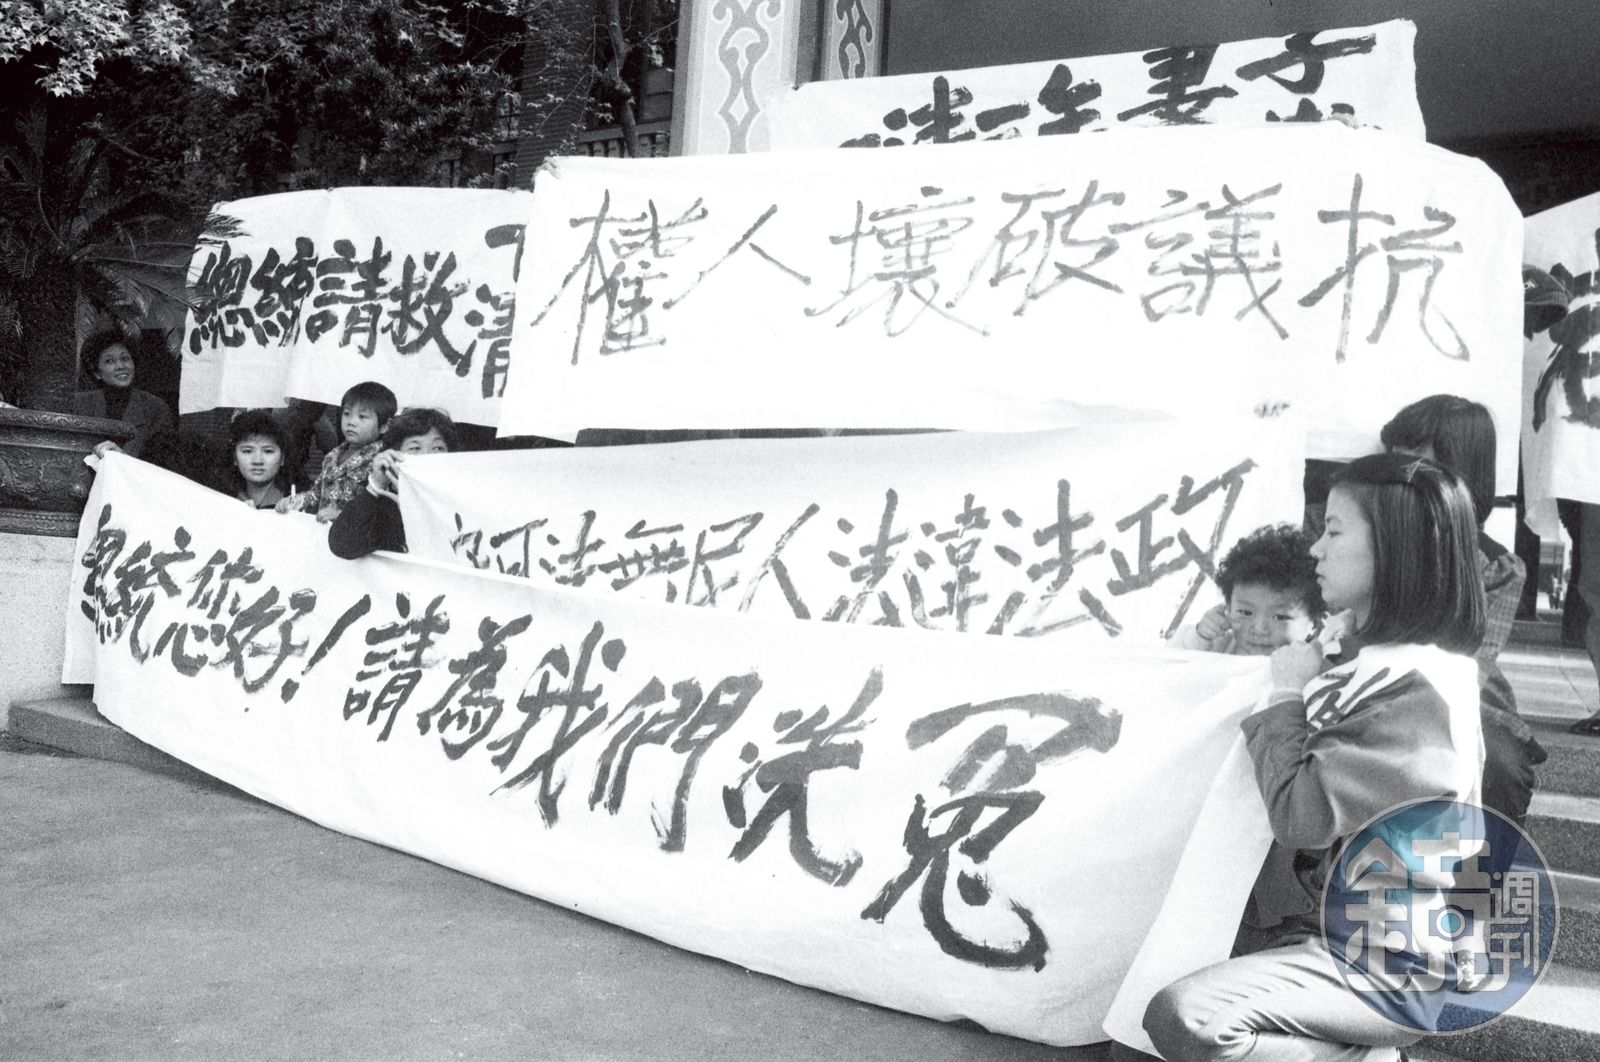 妻子
抗議破壞人權
總統請救清
政法違法人民無法
總統您好！請為我們洗冤
鏡週刊